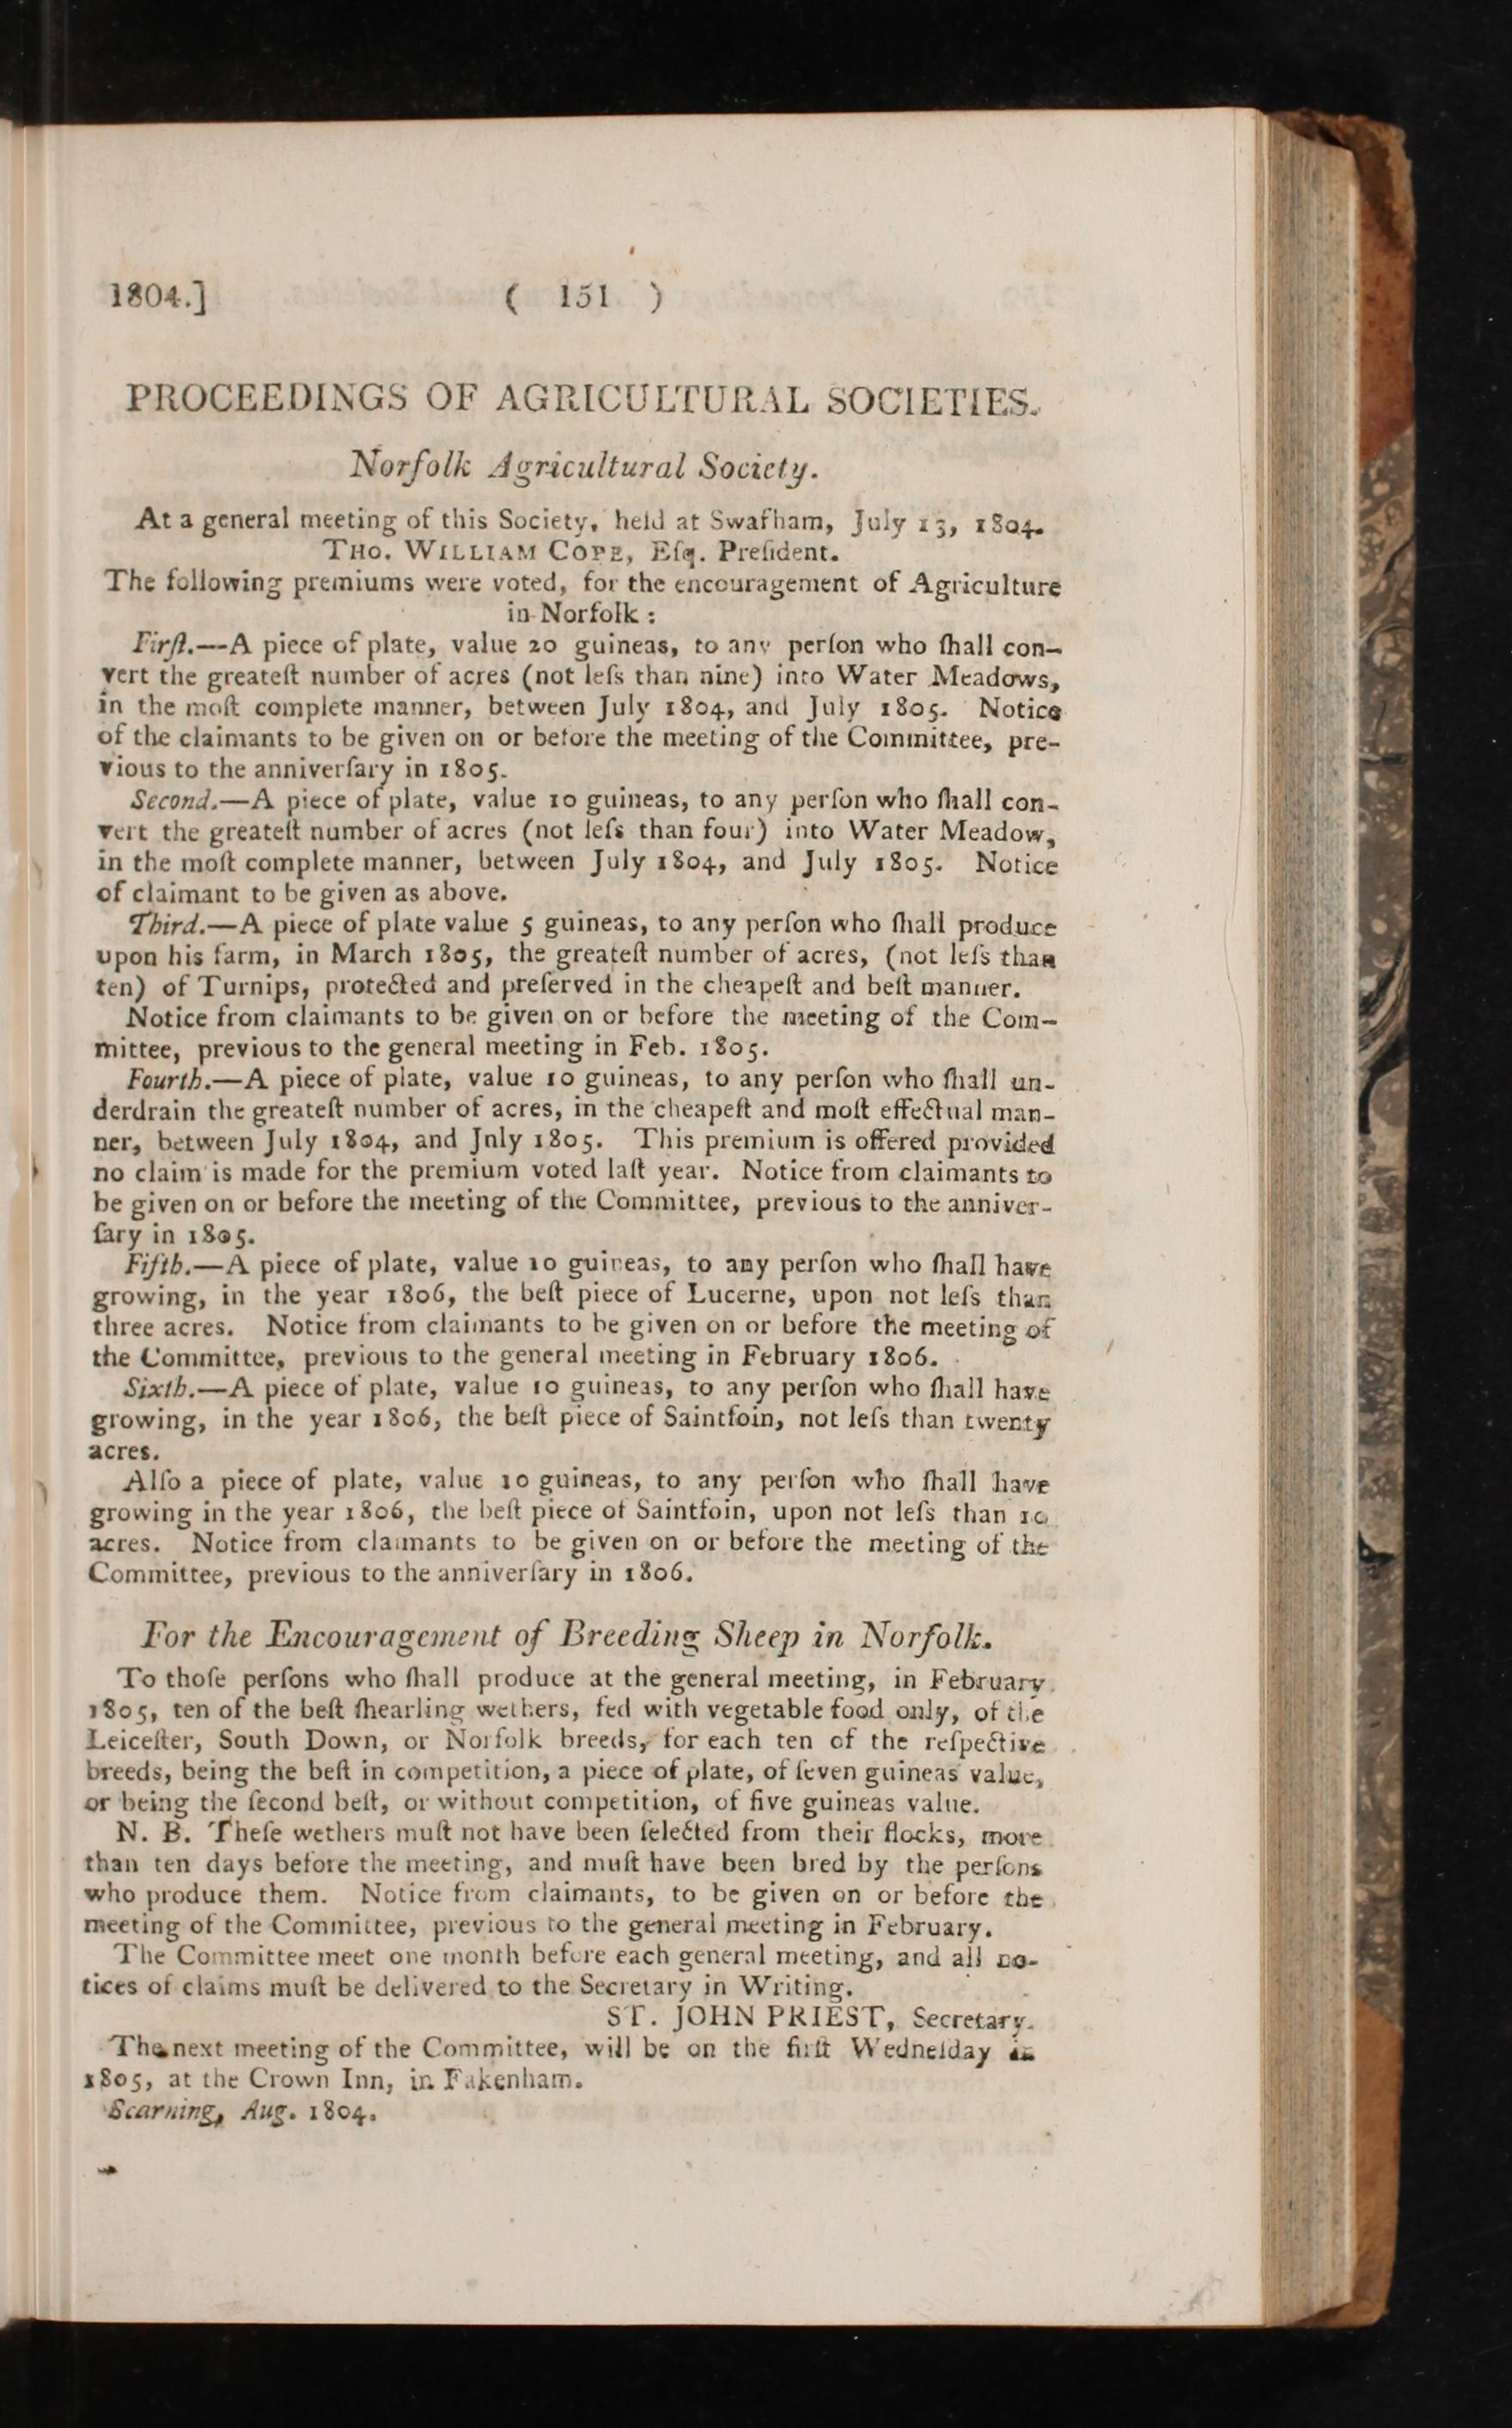 1804.] ( 151 )
PROCEEDINGS OF AGRICULTURAL SOCIETIES.
Norfolk Agricultural Society.
At a general meeting of this Society, held at Swafham, July 13, 1804.
THO. WILLIAM COPE, Eſq. Preſident.
The following premiums were voted, for the encouragement of Agriculture
in Norfolk :
Firſt.—A piece of plate, value 20 guineas, to any perſon who ſhall con-
vert the greateſt number of acres (not leſs than nine) into Water Meadows,
in the moſt complete manner, between July 1804, and July 1805. Notice
of the claimants to be given on or before the meeting of the Committee, pre-
vious to the anniverſary in 1805.
Second.—A piece of plate, value 10 guineas, to any perſon who ſhall con-
vert the greateſt number of acres (not leſs than four) into Water Meadow,
in the moſt complete manner, between July 1804, and July 1805. Notice
of claimant to be given as above.
Third.—A piece of plate value 5 guineas, to any perſon who ſhall produce
upon his farm, in March 1805, the greateſt number of acres, (not leſs than
ten) of Turnips, protected and preſerved in the cheapeſt and beſt manner.
Notice from claimants to be given on or before the meeting of the Com-
mittee, previous to the general meeting in Feb. 1805.
Fourth.—A piece of plate, value 10 guineas, to any perſon who ſhall un-
derdrain the greateſt number of acres, in the cheapeſt and moſt effectual man-
ner, between July 1804, and Jnly 1805. This premium is offered provided
no claim is made for the premium voted laſt year. Notice from claimants to
be given on or before the meeting of the Committee, previous to the anniver-
ſary in 1805.
Fifth.—A piece of plate, value 10 guineas, to any perſon who ſhall have
growing, in the year 1806, the beſt piece of Lucerne, upon not leſs than
three acres. Notice from claimants to be given on or before the meeting of
the Committee, previous to the general meeting in February 1806.
Sixth.—A piece of plate, value 10 guineas, to any perſon who ſhall have
growing, in the year 1806, the beſt piece of Saintfoin, not leſs than twenty
acres.
Alſo a piece of plate, value 10 guineas, to any perſon who ſhall have
growing in the year 1806, the beſt piece of Saintfoin, upon not leſs than 10
acres. Notice from claimants to be given on or before the meeting of the
Committee, previous to the anniverſary in 1806.
For the Encouragement of Breeding Sheep in Norfolk.
To thoſe perſons who ſhall produce at the general meeting, in February
1805, ten of the beſt ſhearling wethers, fed with vegetable food only, of the
Leiceſter, South Down, or Norfolk breeds, for each ten of the reſpective
breeds, being the beſt in competition, a piece of plate, of ſeven guineas value,
or being the ſecond beſt, or without competition, of five guineas value.
N. B. Theſe wethers muſt not have been ſelected from their flocks, more
than ten days before the meeting, and muſt have been bred by the perſons
who produce them. Notice from claimants, to be given on or before the
meeting of the Committee, previous to the general meeting in February.
The Committee meet one month before each general meeting, and all no-
tices of claims muſt be delivered to the Secretary in Writing.
ST. JOHN PRIEST, Secretary.
The next meeting of the Committee, will be on the firſt Wedneſday in
1805, at the Crown Inn, in Fakenham.
Scarning, Aug. 1804.